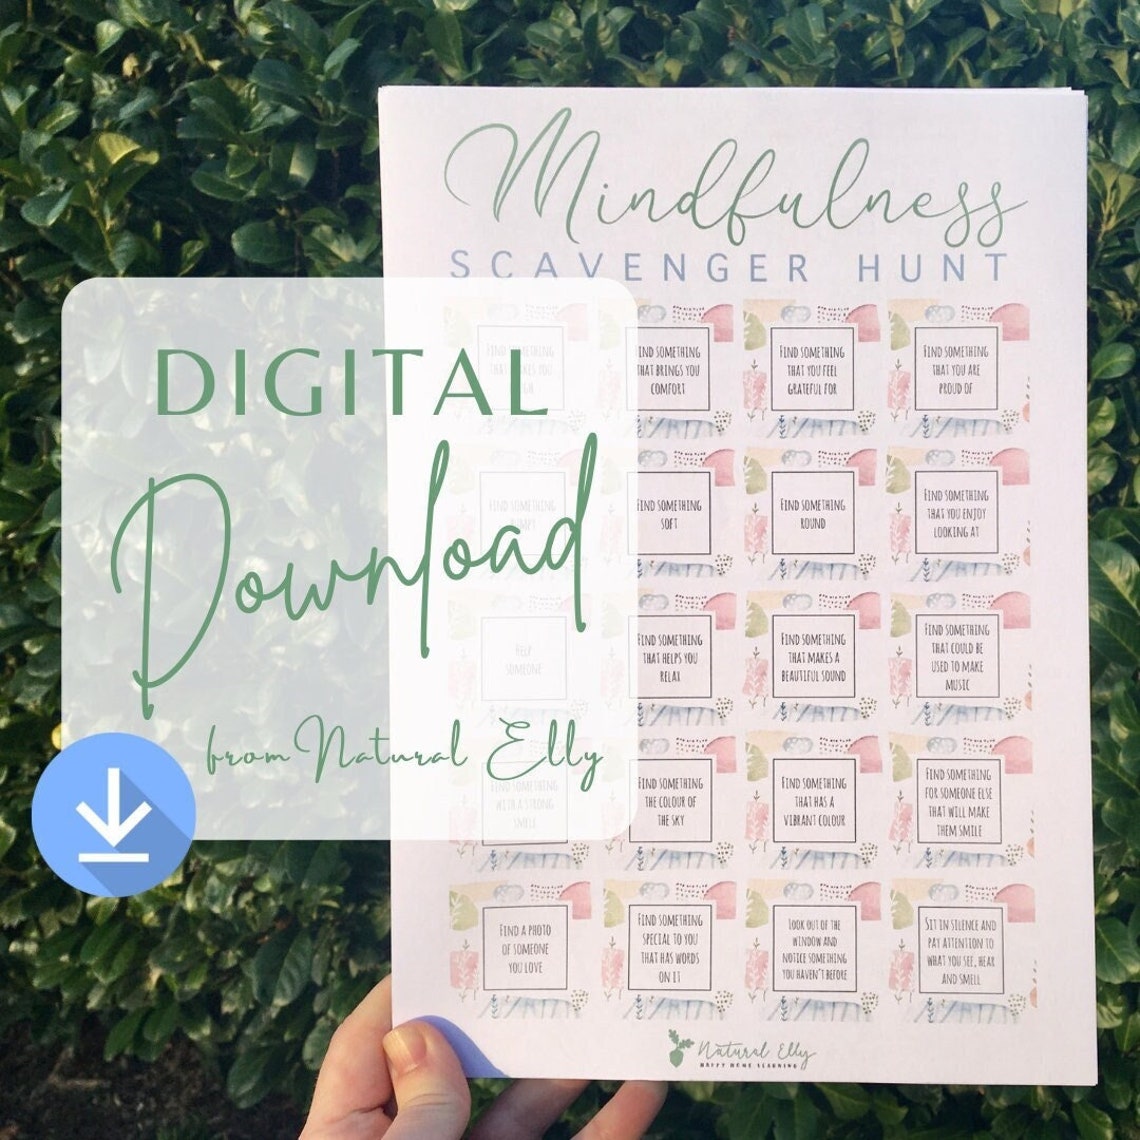 Mindfulness
SCAVENGER HUNT
DIGITAL
Download
from Natural Elly
FIND SOMETHING
THAT MAKES YOU
FIND SOMETHING
THAT BRINGS YOU
COMFORT
FIND SOMETHING
THAT YOU FEEL
GRATEFUL FOR
FIND SOMETHING
THAT YOU ARE
PROUD OF
FIND SOMETHING
FIND SOMETHING
SOFT
FIND SOMETHING
ROUND
FIND SOMETHING
THAT YOU ENJOY
LOOKING AT
HELP
SOMEONE
FIND SOMETHING
THAT HELPS YOU
RELAX
FIND SOMETHING
THAT MAKES A
BEAUTIFUL SOUND
FIND SOMETHING
THAT COULD BE
USED TO MAKE
MUSIC
FIND SOMETHING
WITH A STRONG
SMELL
FIND SOMETHING
THE COLOUR OF
THE SKY
FIND SOMETHING
THAT HAS A
VIBRANT COLOUR
FIND SOMETHING
FOR SOMEONE ELSE
THAT WILL MAKE
THEM SMILE
FIND A PHOTO
OF SOMEONE
YOU LOVE
FIND SOMETHING
SPECIAL TO YOU
THAT HAS WORDS
ON IT
LOOK OUT OF THE
WINDOW AND
NOTICE SOMETHING
YOU HAVEN'T BEFORE
SIT IN SILENCE AND
PAY ATTENTION TO
WHAT YOU SEE, HEAR
AND SMELL
Natural Elly
HAPPY HOME LEARNING